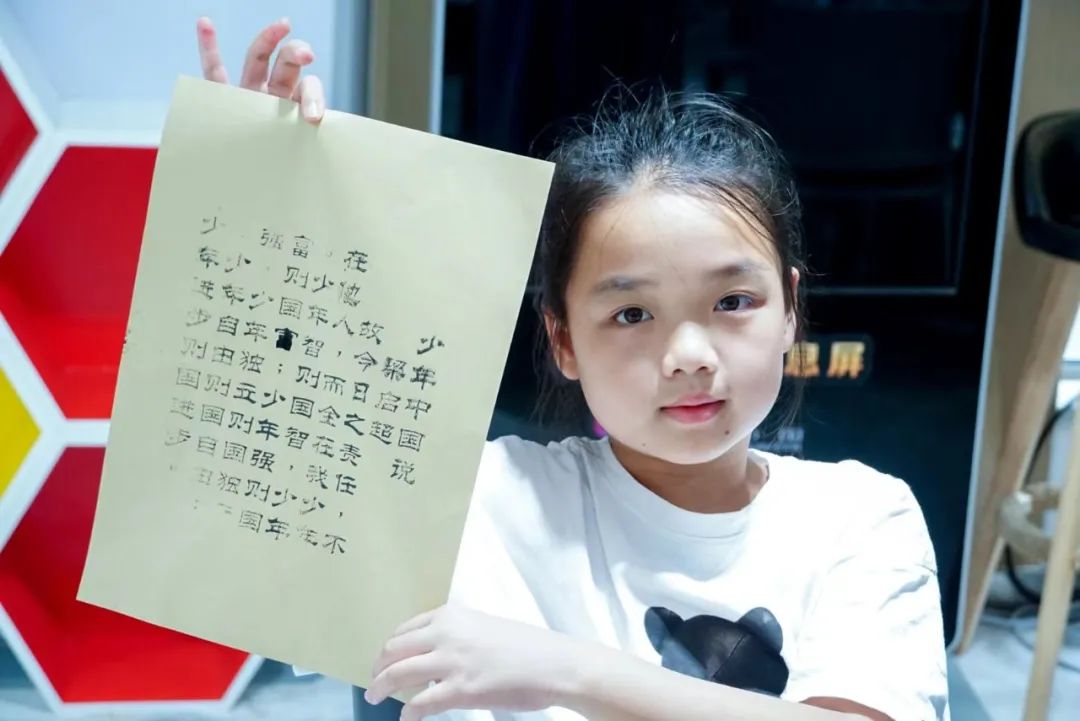 少年中国说
梁启超
故今日之责任，不
在他人，而全在我少
。少年智则国智，少年
富则国富；少年强则国
强，少年独立则国独
少年自由则国自由
少年进步则国进步
息屏